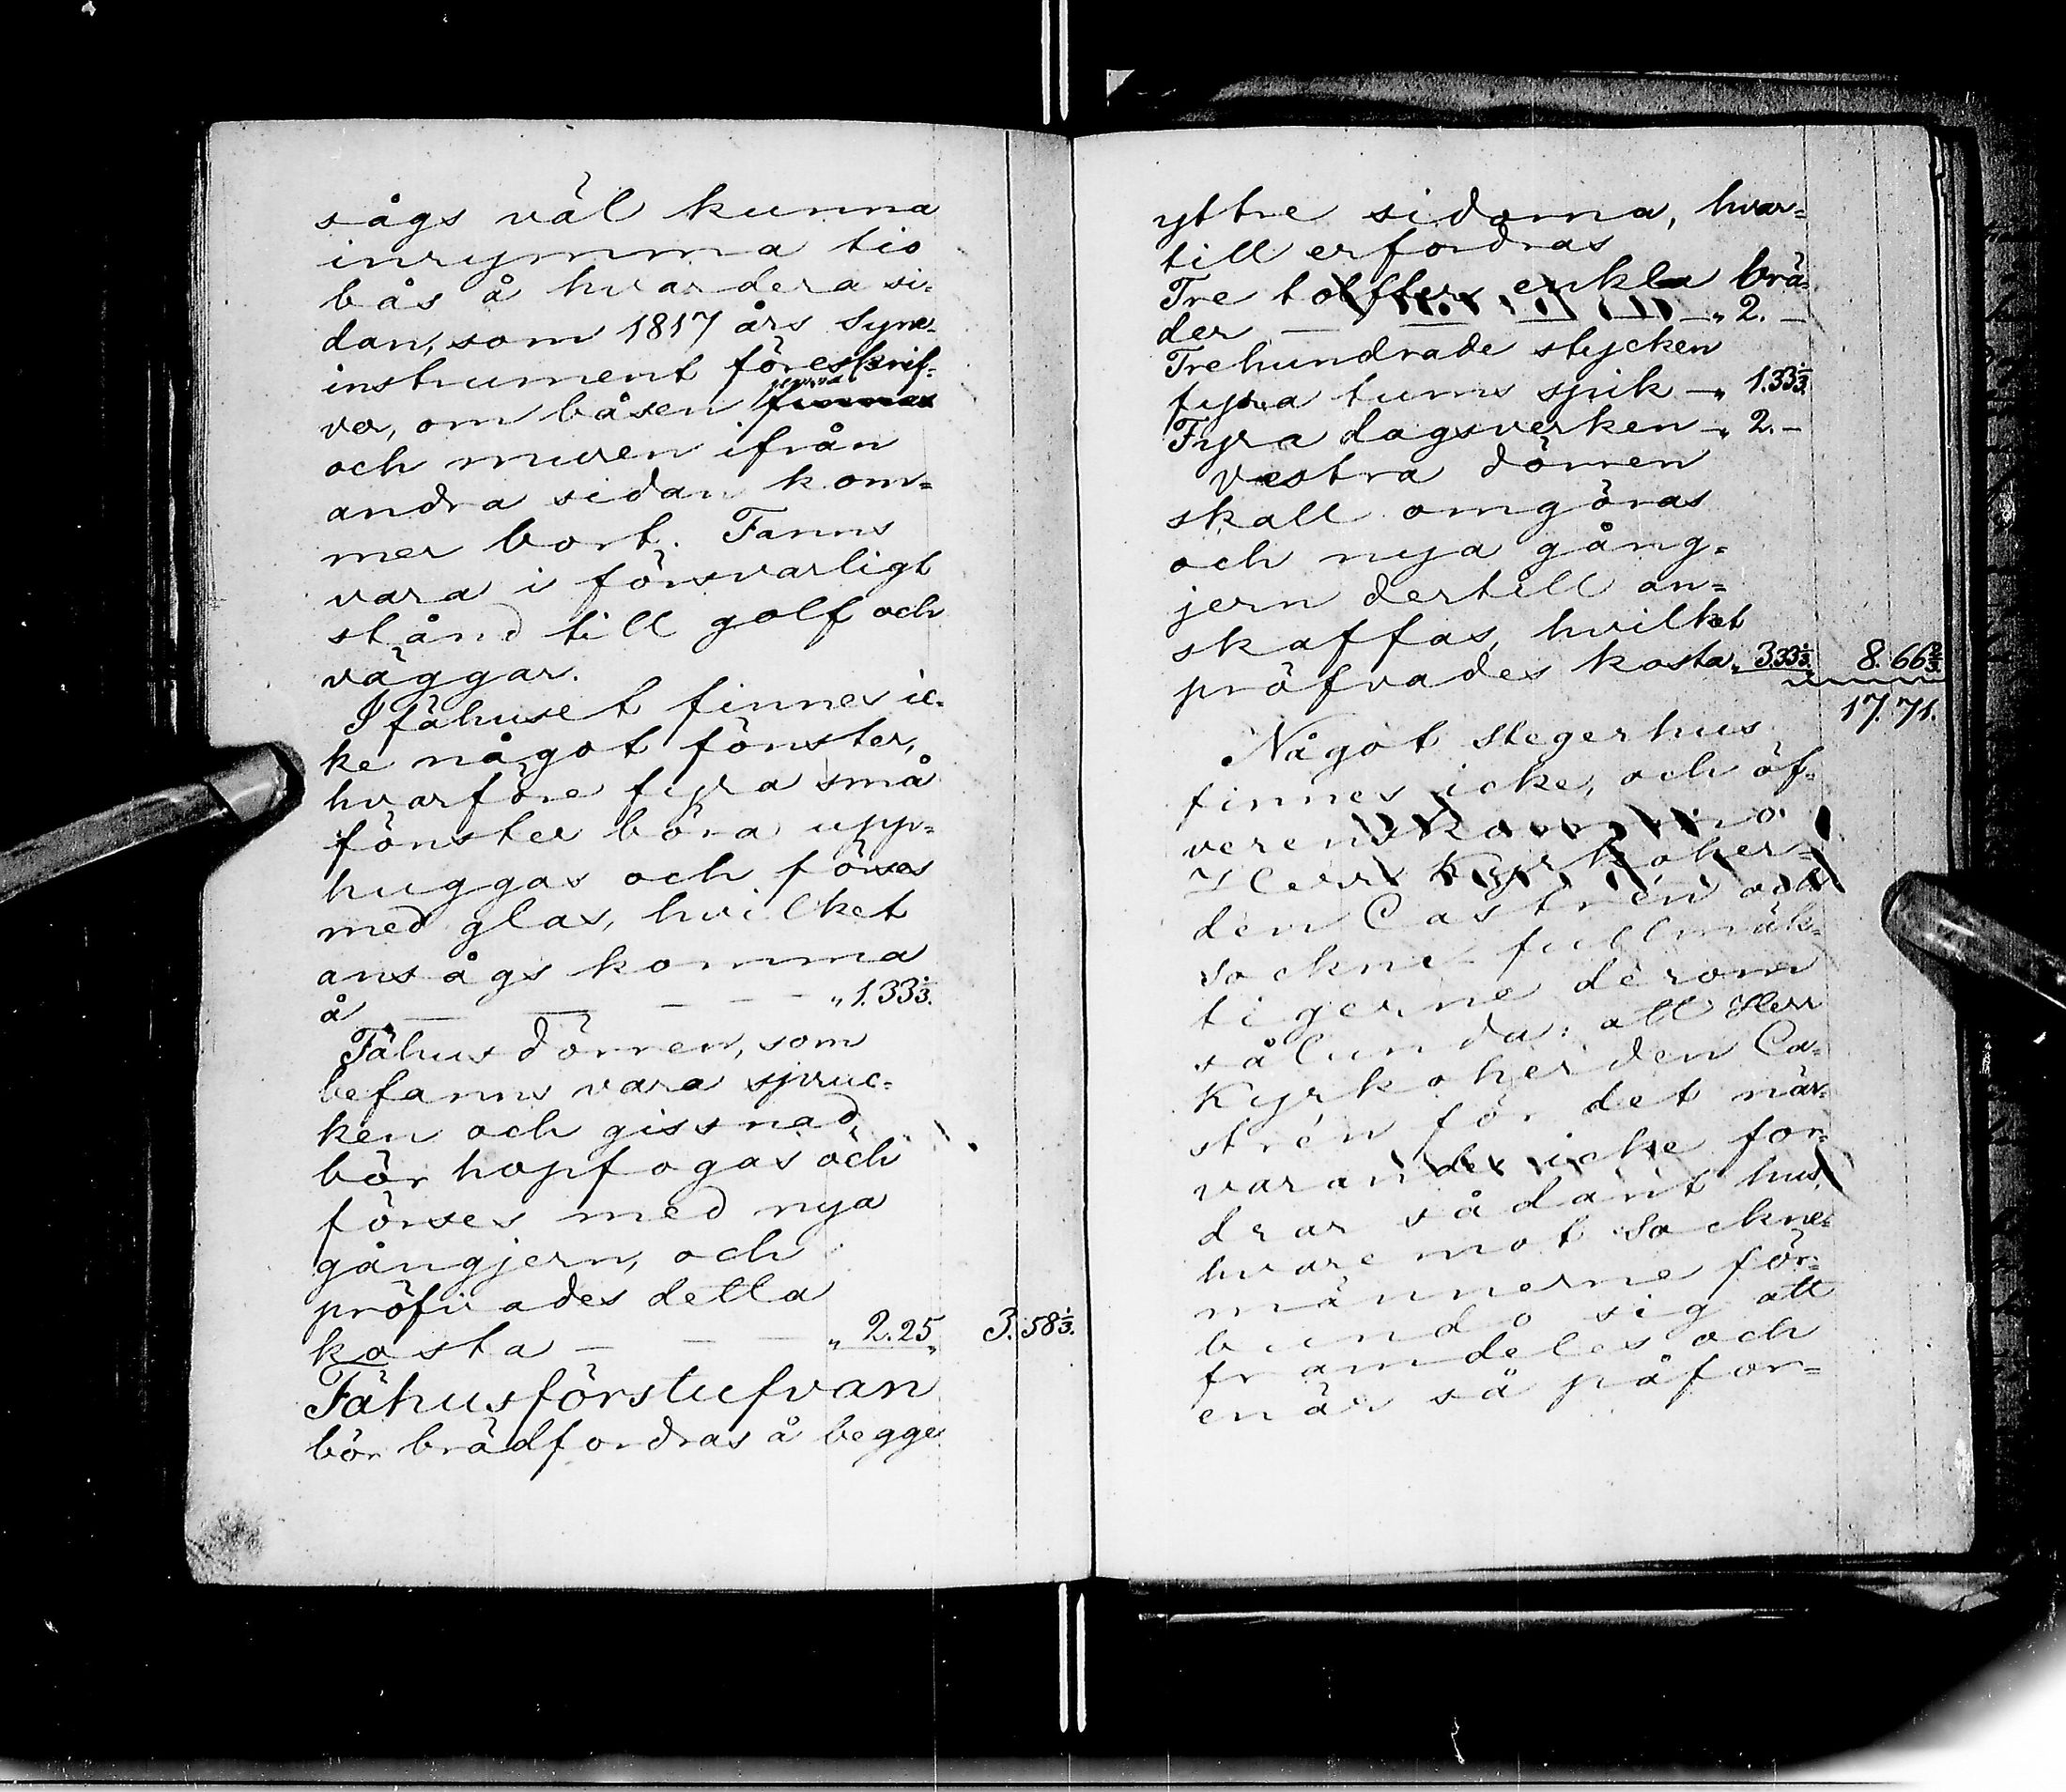 sågs väl kunna
inrymma tio
bås å hvardera si-
dan, som 1817 års Syne-
instrument föreskrif-
ver, om båsen
och muren ifrån
andra sidan kom-
mer bort. Fanns
vara i försvarligt
stånd till golf och
väggar.
I fähuset finnes ic-
ke något fönster,
hvarföre fyra små
fönster böra upp-
huggas och förses
med glas, hvilket
ansågs komma
å — — — — „ 1.33⅓.
Fähusdörren, som
befanns vara spruc-
ken och gissnad,
bör hopfogas och
förses med nya
gångjern, och
pröfvades detta
kosta — — — „ 2.25„ 3.58⅓.
Fähusförstufvan
bör brädfordras å begge
yttre sidorna, hvar-
till erfordras
Tre tolfter enkla brä-
der — — — — „ 2. —
Trehundrade stycken
fyra tums spik — „ 1.33⅓.
Fyra dagsverken — „ 2. —
Vestra dörren
skall omgöras
och nya gång-
jern dertill an-
skaffas, hvilket
pröfvades kosta „ 3.33⅓. 8.66⅔.
17.71.
Något stegerhus
finnes icke, och öf-
verenskommo
Herr Kyrkoher-
den Castrén och
Sockne fullmäk-
tigerne derom
sålunda: att Herr
Kyrkoherden Ca-
strén för det när-
varande icke for-
drar sådant hus,
hvaremot Sockne-
männerne för-
bundo sig att
framdeles och
enär så påfor-